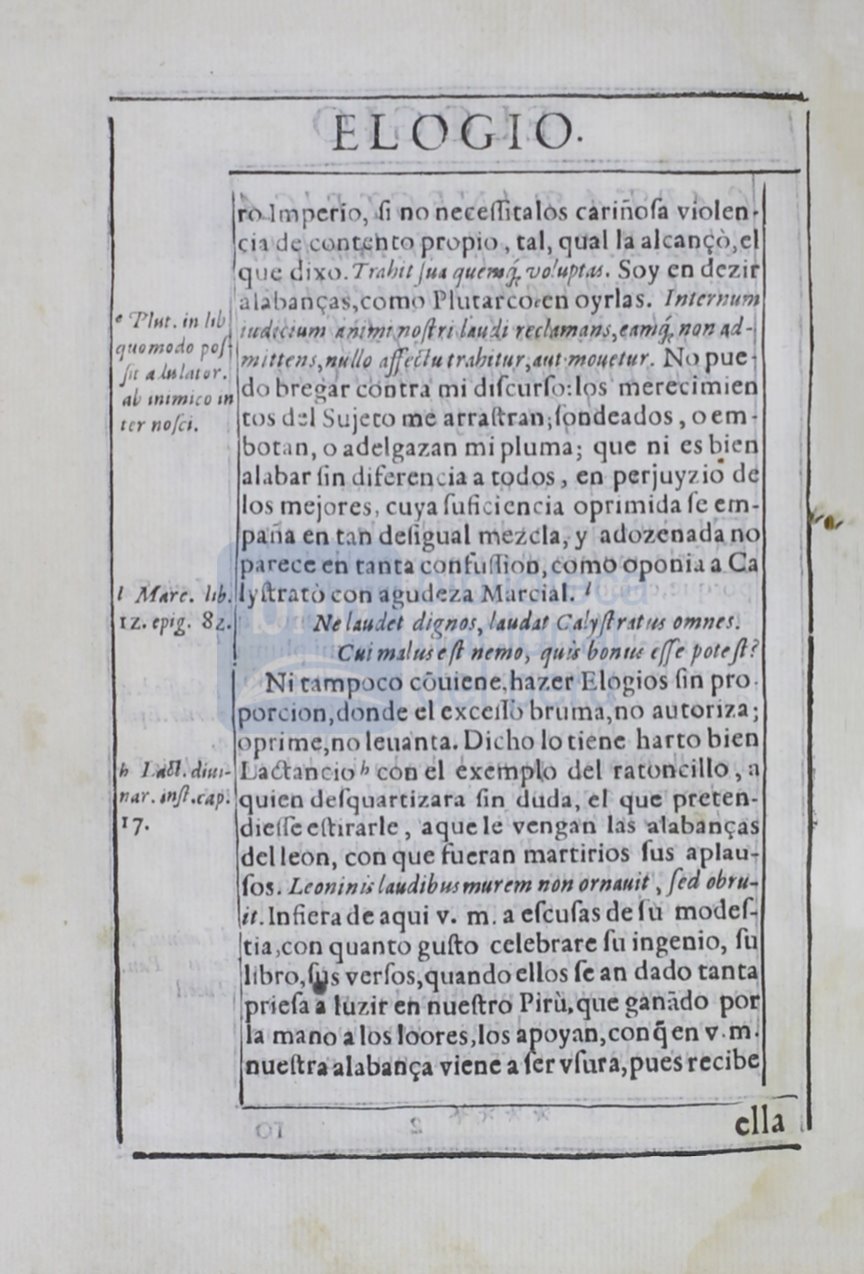 ELOGIO.
ro Imperio, ſi no neceſſitalos cariñoſa violen-
cia de contento propio, tal, qual la alcançò, el
que dixo. Trahit ſua quemq́; voluptas. Soy en dezir
alabanças, como Plutarco e en oyrlas. Internum
iudicium animi noſtri laudi reclamans, eamq́; non ad-
mittens, nullo affectu trahitur, aut mouetur. No pue-
do bregar contra mi diſcurſo: los merecimien
tos del Sujeto me arraſtran; ſondeados, o em-
botan, o adelgazan mi pluma; que ni es bien
alabar ſin diferencia a todos, en perjuyzio de
los mejores, cuya ſuficiencia oprimida ſe em-
paña en tan deſigual mezcla, y adozenada no
parece en tanta confuſſion, como oponia a Ca
lyſtrato con agudeza Marcial. l
Ne laudet dignos, laudat Calyſtratus omnes.
Cui malus eſt nemo, quis bonus eſſe poteſt?
Ni tampoco cōuiene, hazer Elogios ſin pro-
porcion, donde el exceſſo bruma, no autoriza;
oprime, no leuanta. Dicho lo tiene harto bien
Lactancio h con el exemplo del ratoncillo, a
quien deſquartizara ſin duda, el que preten-
dieſſe eſtirarle, a que le vengan las alabanças
del leon, con que fueran martirios ſus aplau-
ſos. Leoninis laudibus murem non ornauit, ſed obru-
it. Infiera de aqui v. m. a eſcuſas de ſu modeſ-
tia, con quanto guſto celebrare ſu ingenio, ſu
libro, ſus verſos, quando ellos ſe an dado tanta
prieſa a luzir en nueſtro Pirù, que ganādo por
la mano a los loores, los apoyan, con q̃ en v. m.
nueſtra alabança viene a ſer vſura, pues recibe
ella
e Plut. in lib
quomodo poſ-
ſit adulator.
ab inimico in
ter noſci.
l Marc. lib.
12. epig. 82.
h Lact. diui-
nar. inſt. cap.
17.